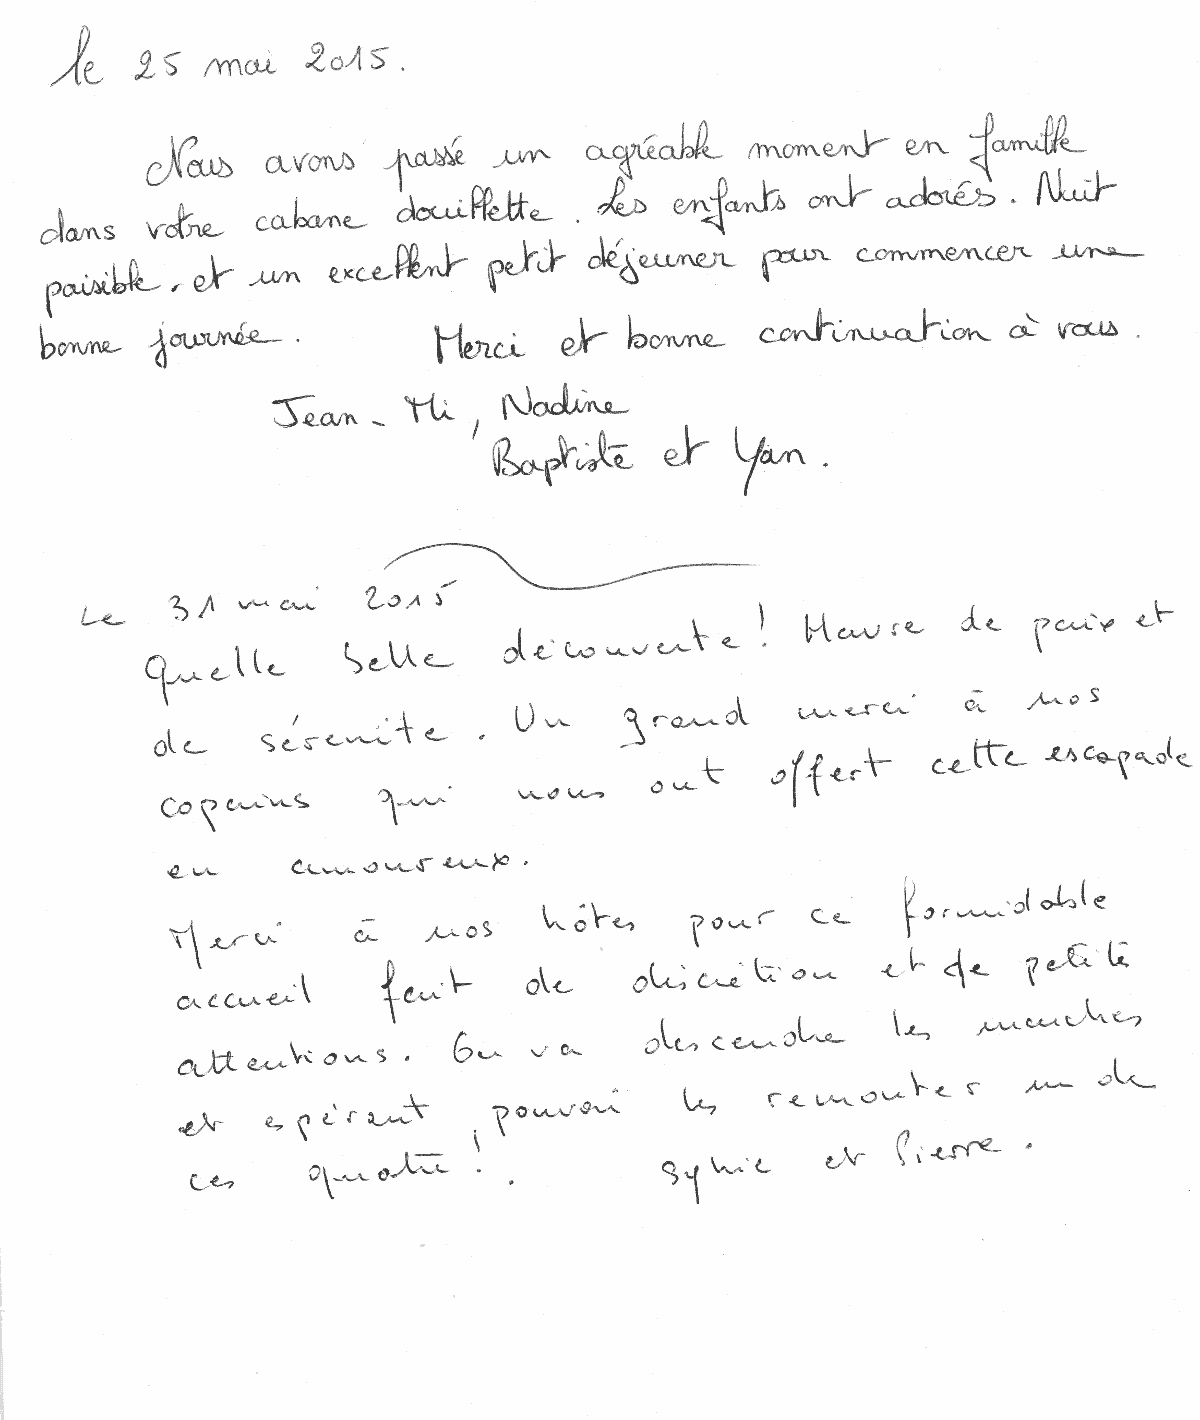 le 25 mai 2015.
Nous avons passé un agréable moment en famille
dans votre cabane douillette. Les enfants ont adorés. Nuit
paisible. et un excellent petit déjeuner pour commencer une
bonne journée. Merci et bonne continuation à vous.
Jean-Mi, Nadine
Baptiste et Yan.
Le 31 mai 2015
Quelle belle découverte! Havre de paix et
de sérénite. Un grand merci à nos
copains qui nous ont offert cette escapade
en amoureux.
Merci à nos hôtes pour ce formidable
accueil fait de discrétion et de petites
attentions. On va descendre les marches
et espérant pouvoir les remonter un de
ces quatre! Sylvie et Pierre.